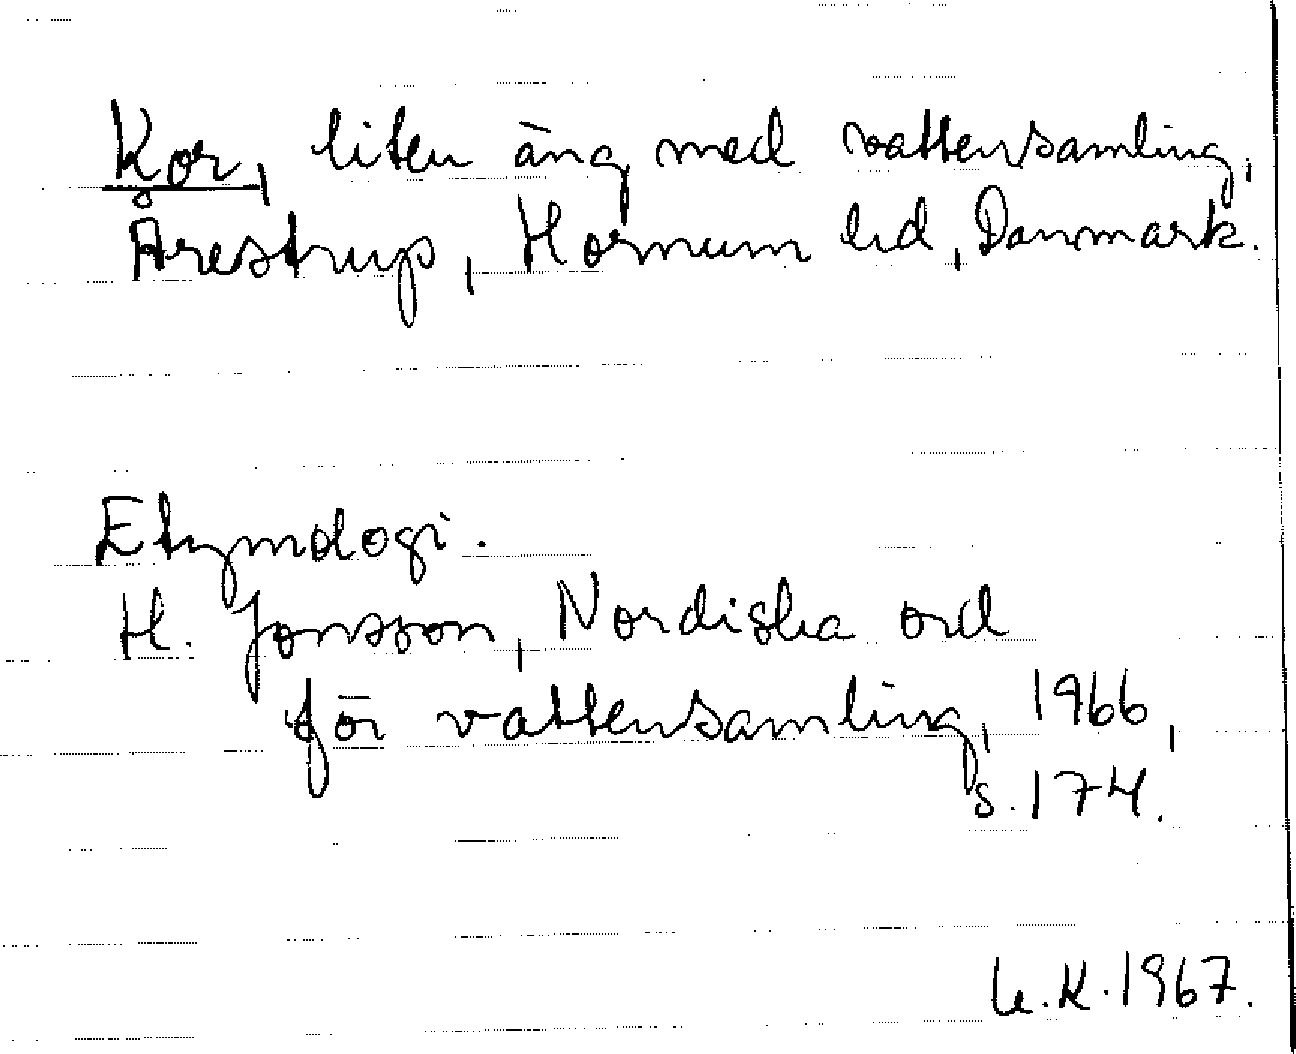 Kor, liten äng med vattensamling,
Årestrup, Hornum hd, Danmark.
Etymologi.
H. Jonsson, Nordiska ord
för vattensamling, 1966,
s. 174.
K. 1967.